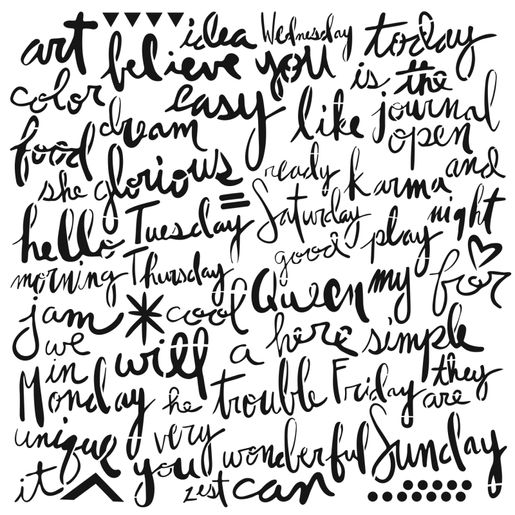 art idea Wednesday today
believe you is the
color easy like journal
food dream open
she glorious ready karma and
hello Tuesday Saturday night
good play
morning Thursday Queen my for
jam cool
we will a here simple
in trouble Friday they
Monday he are
unique very wonderful Sunday
it you zest can